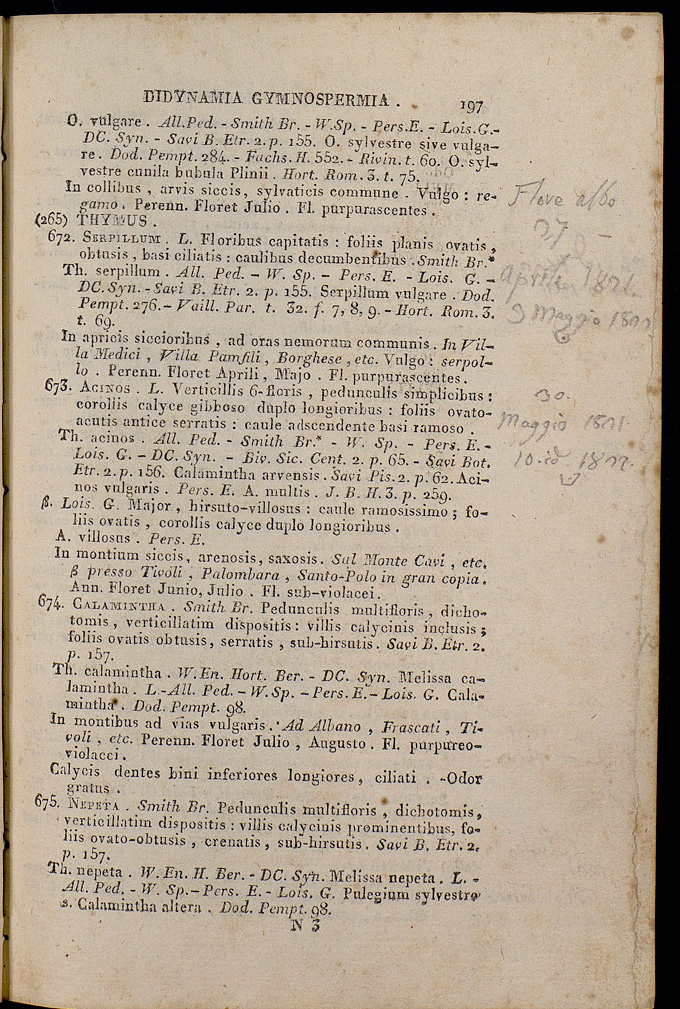 DIDYNAMIA GYMNOSPERMIA . 197
O. vulgare . All.Ped. - Smith Br. - W.Sp. - Pers.E. - Lois.G.-
DC. Syn. - Savi B. Etr. 2. p. 155. O. sylvestre sive vulga-
re . Dod. Pempt. 284. - Fuchs. H. 552. - Rivin. t. 60. O. syl-
vestre cunila bubula Plinii . Hort. Rom. 3. t. 75.
In collibus , arvis siccis, sylvaticis commune . Vulgo : re-
gamo . Perenn. Floret Julio . Fl. purpurascentes .
Flore albo
(265) THYMUS .
27 -
672. SERPILLUM . L. Floribus capitatis : foliis planis ovatis ,
obtusis , basi ciliatis : caulibus decumbentibus . Smith Br.*
Th. serpillum . All. Ped. - W. Sp. - Pers. E. - Lois. G. -
Aprile 1821.
DC. Syn. - Savi B. Etr. 2. p. 155. Serpillum vulgare . Dod.
Pempt. 276. - Vaill. Par. t. 32. f. 7, 8, 9. - Hort. Rom. 3.
t. 69.
3 Maggio 1822
In apricis siccioribus , ad oras nemorum communis . In Vil-
la Medici , Villa Pamfili , Borghese , etc. Vulgo : serpol-
lo . Perenn. Floret Aprili , Majo . Fl. purpurascentes .
673. ACINOS . L. Verticillis 6-floris , pedunculis simplicibus :
30.
corollis calyce gibboso duplo longioribus : foliis ovato-
acutis antice serratis : caule adscendente basi ramoso .
Maggio 1821
Th. acinos . All. Ped. - Smith Br.* - W. Sp. - Pers. E. -
Lois. G. - DC. Syn. - Biv. Sic. Cent. 2. p. 65. - Savi Bot.
10. id. 1822.
Etr. 2. p. 156. Calamintha arvensis . Savi Pis. 2. p. 62. Aci-
nos vulgaris . Pers. E. A. multis . J. B. H. 3. p. 259.
β. Lois. G. Major , hirsuto-villosus : caule ramosissimo ; fo-
liis ovatis , corollis calyce duplo longioribus .
A. villosus . Pers. E.
In montium siccis, arenosis, saxosis. Sul Monte Cavi , etc.
β presso Tivoli , Palombara , Santo-Polo in gran copia .
Ann. Floret Junio, Julio . Fl. sub-violacei .
674. CALAMINTHA . Smith Br. Pedunculis multifloris , dicho-
tomis , verticillatim dispositis : villis calycinis inclusis ;
foliis ovatis obtusis, serratis , sub-hirsutis . Savi B. Etr. 2.
p. 157.
Th. calamintha . W. En. Hort. Ber. - DC. Syn. Melissa ca-
lamintha . L. - All. Ped. - W. Sp. - Pers. E. - Lois. G. Cala-
mintha . Dod. Pempt. 98.
In montibus ad vias vulgaris . Ad Albano , Frascati , Ti-
voli , etc. Perenn. Floret Julio , Augusto . Fl. purpureo-
violacei .
Calycis dentes bini inferiores longiores , ciliati . -Odor
gratus .
675. NEPETA . Smith Br. Pedunculis multifloris , dichotomis ,
verticillatim dispositis : villis calycinis prominentibus, fo-
liis ovato-obtusis , crenatis , sub-hirsutis . Savi B. Etr. 2.
p. 157.
Th. nepeta . W. En. H. Ber. - DC. Syn. Melissa nepeta . L. -
All. Ped. - W. Sp. - Pers. E. - Lois. G. Pulegium sylvestre
s. Calamintha altera . Dod. Pempt. 98.
N 3